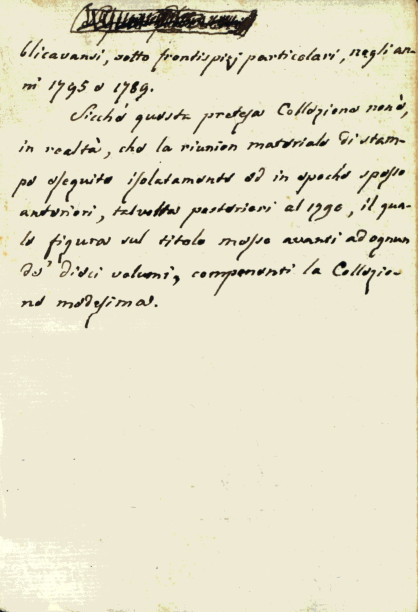 blicavansi, sotto frontispizj particolari, negli an-
ni 1795 e 1789.
Sicchè questa pretesa Collezione non è,
in realtà, che la riunion materiale di stam-
pe eseguite isolatamente ed in epoche spesso
anteriori, talvolta posteriori al 1790, il qua-
le figura sul titolo messo avanti ad ognun
de' dieci volumi, componenti la Collezio-
ne medesima.